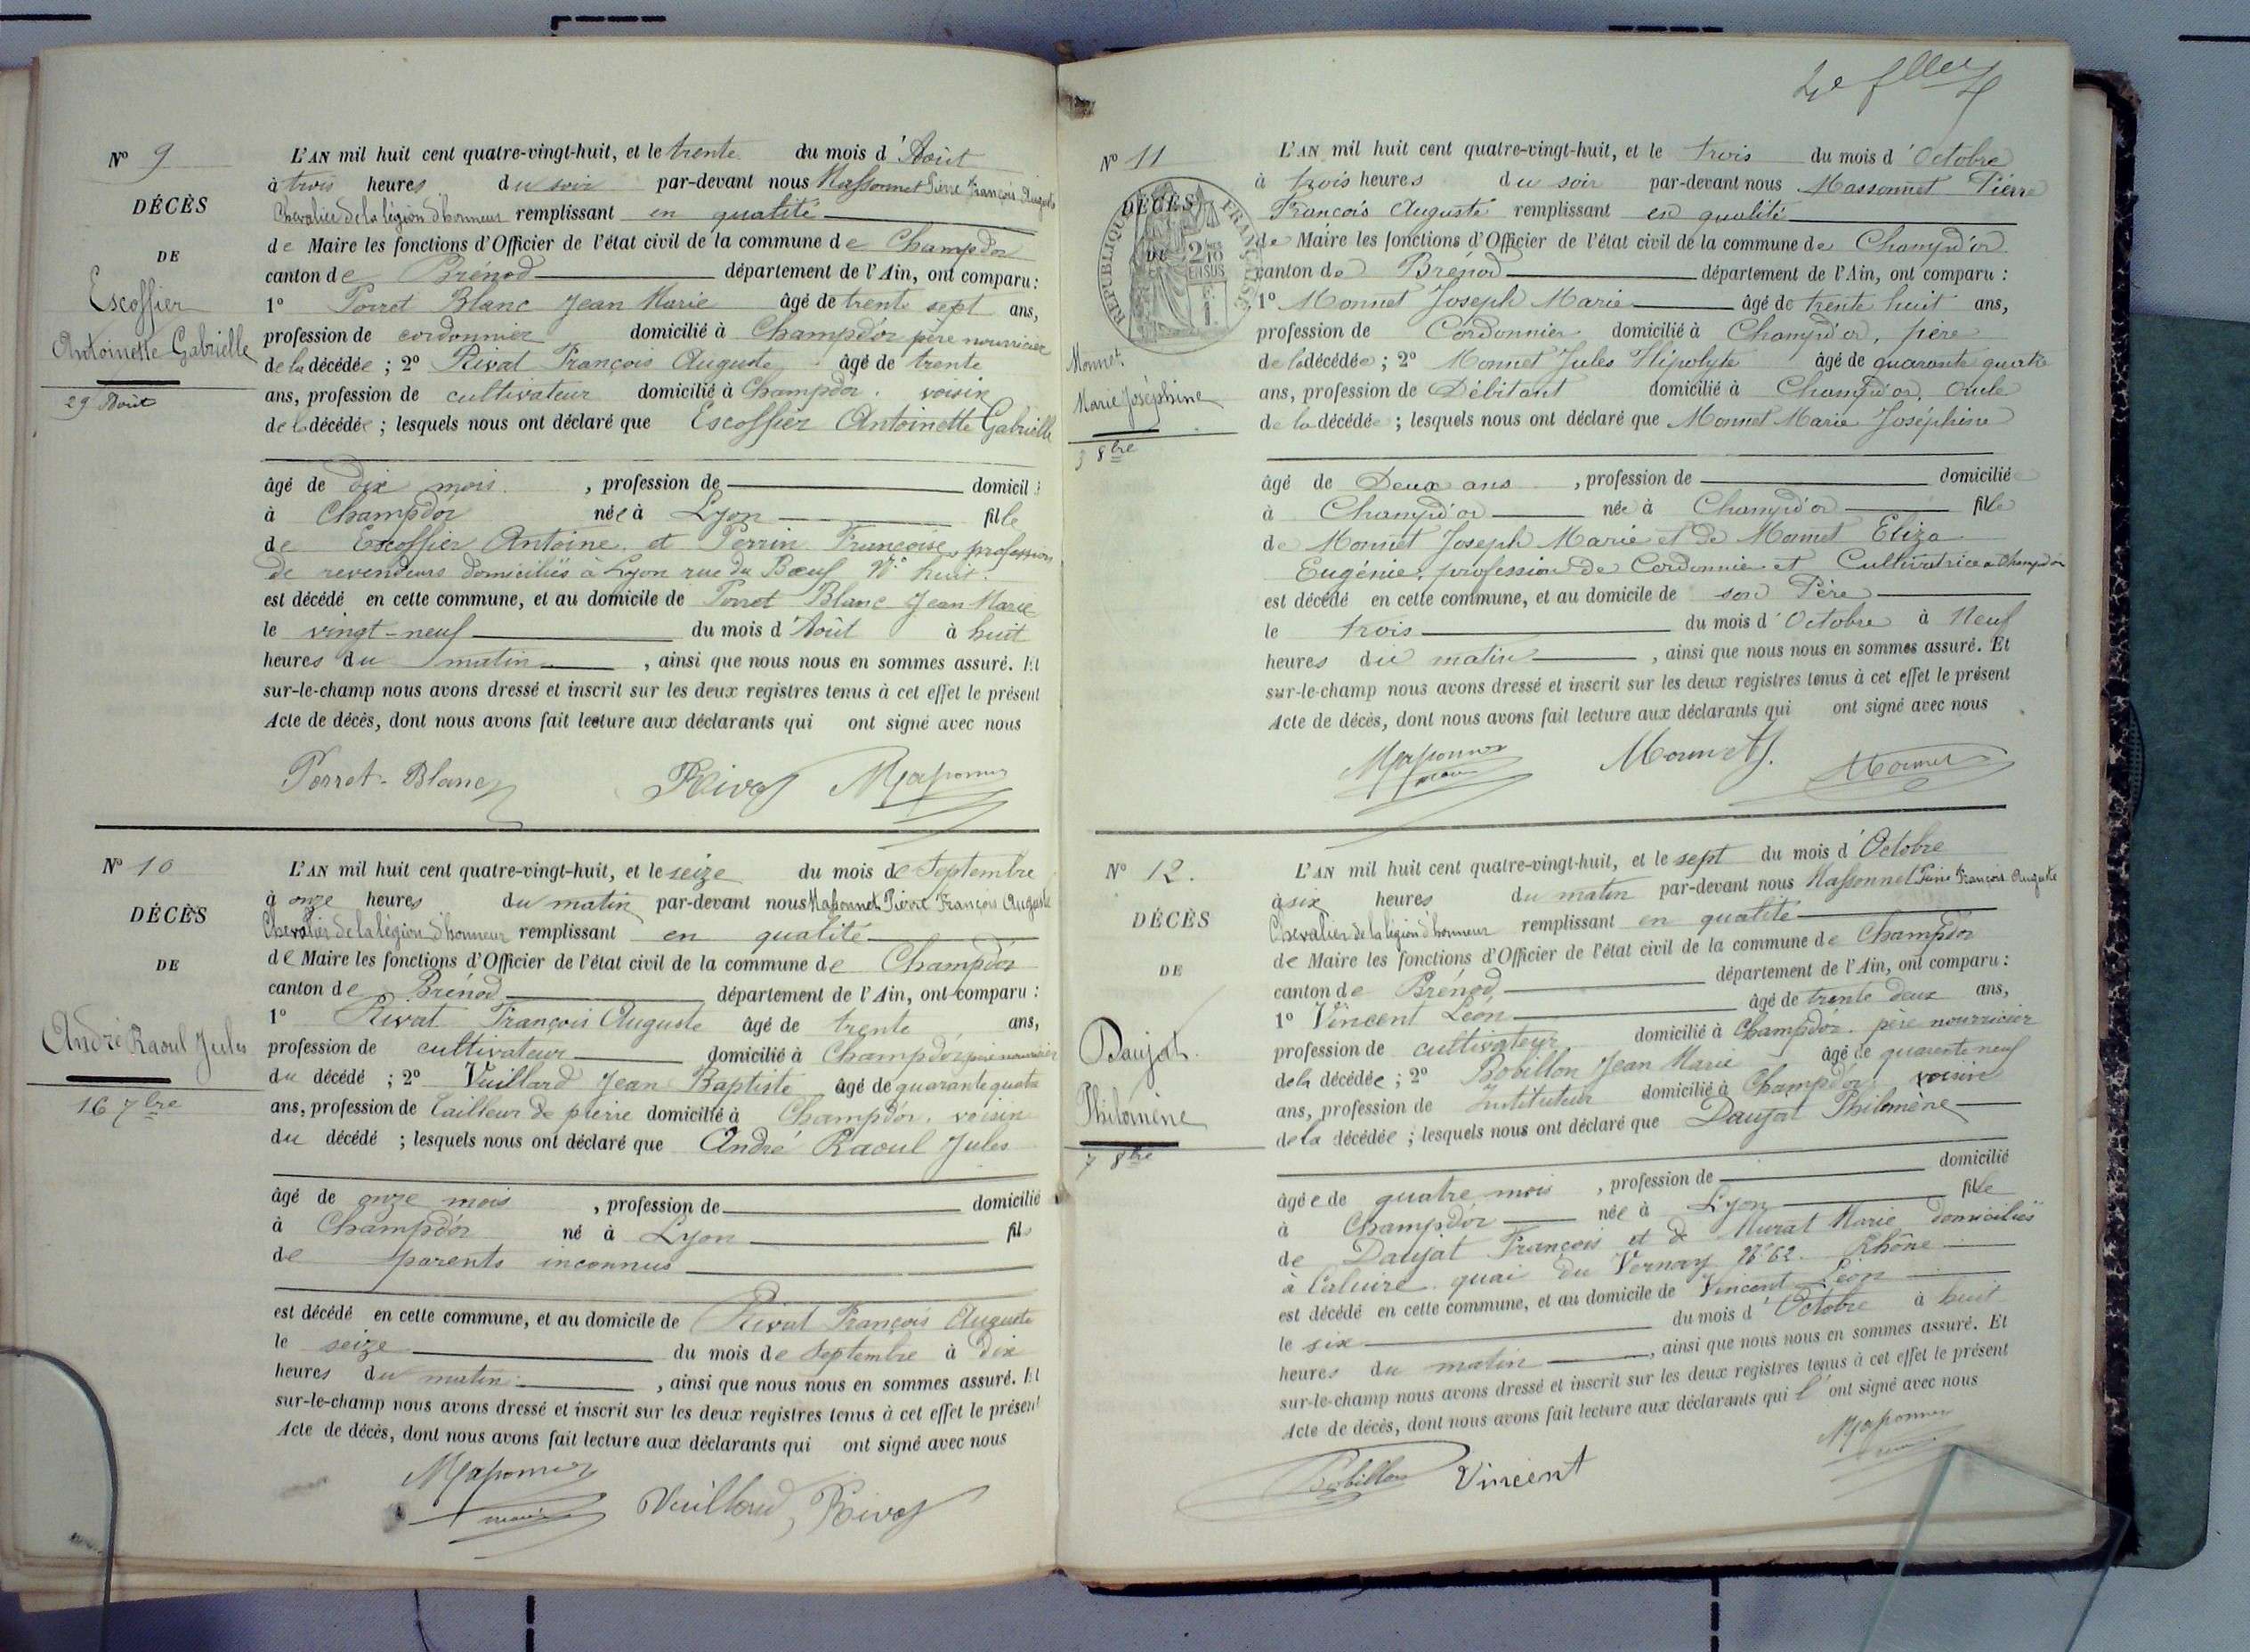 N° 9
DÉCÈS
DE
Escoffier
Antoinette Gabrielle
29 Août
L'AN mil huit cent quatre-vingt-huit, et le trente du mois d'Août
à trois heures du soir par-devant nous Massonnet Pierre François Auguste
Chevalier de la légion d'honneur remplissant en qualité
de Maire les fonctions d'Officier de l'état civil de la commune de Champdor
canton de Brénod département de l'Ain, ont comparu :
1° Perret Blanc Jean Marie âgé de trente sept ans,
profession de cordonnier domicilié à Champdor père nourricier
de la décédée ; 2° Rivat François Auguste âgé de trente
ans, profession de cultivateur domicilié à Champdor. voisin
de la décédée ; lesquels nous ont déclaré que Escoffier Antoinette Gabrielle
âgé de dix mois , profession de domicilié
à Champdor née à Lyon fille
de Escoffier Antoine et Perrin Françoise profession
de revendeurs domiciliés à Lyon rue du Bœuf N° huit.
est décédé en cette commune, et au domicile de Perret Blanc Jean Marie
le vingt-neuf du mois d'Août à huit
heures du matin , ainsi que nous nous en sommes assuré. Et
sur-le-champ nous avons dressé et inscrit sur les deux registres tenus à cet effet le présent
Acte de décès, dont nous avons fait lecture aux déclarants qui ont signé avec nous
Perret-Blanc Rivat Massonnet
N° 10
DÉCÈS
DE
André Raoul Jules
16 7bre
L'AN mil huit cent quatre-vingt-huit, et le seize du mois de Septembre
à onze heures du matin par-devant nous Massonnet Pierre François Auguste
Chevalier de la légion d'honneur remplissant en qualité
de Maire les fonctions d'Officier de l'état civil de la commune de Champdor
canton de Brénod département de l'Ain, ont comparu :
1° Rivat François Auguste âgé de trente ans,
profession de cultivateur domicilié à Champdor père nourricier
du décédé ; 2° Vuillard Jean Baptiste âgé de quarante quatre
ans, profession de tailleur de pierre domicilié à Champdor. voisin
du décédé ; lesquels nous ont déclaré que André Raoul Jules
âgé de onze mois , profession de domicilié
à Champdor né à Lyon fils
de parents inconnus
est décédé en cette commune, et au domicile de Rivat François Auguste
le seize du mois de Septembre à dix
heures du matin , ainsi que nous nous en sommes assuré. Et
sur-le-champ nous avons dressé et inscrit sur les deux registres tenus à cet effet le présent
Acte de décès, dont nous avons fait lecture aux déclarants qui ont signé avec nous
Massonnet maire Vuillard Rivat
N° 11
DÉCÈS
DE
RÉPUBLIQUE FRANÇAISE
2/10 EN SUS
Monnet
Marie Joséphine
3 8bre
L'AN mil huit cent quatre-vingt-huit, et le trois du mois d'Octobre
à trois heures du soir par-devant nous Massonnet Pierre
François Auguste remplissant en qualité
de Maire les fonctions d'Officier de l'état civil de la commune de Champd'or
canton de Brénod département de l'Ain, ont comparu :
1° Monnet Joseph Marie âgé de trente huit ans,
profession de Cordonnier domicilié à Champd'or, père
de la décédée ; 2° Monnet Jules Hipolyte âgé de quarante quatre
ans, profession de Débitant domicilié à Champd'or, Oncle
de la décédée ; lesquels nous ont déclaré que Monnet Marie Joséphine
âgé de Deux ans , profession de domiciliée
à Champd'or née à Champd'or fille
de Monnet Joseph Marie et de Monnet Eliza
Eugénie, profession de Cordonnier et Cultivatrice à Champdor
est décédé en cette commune, et au domicile de son Père
le trois du mois d'Octobre à Neuf
heures du matin , ainsi que nous nous en sommes assuré. Et
sur-le-champ nous avons dressé et inscrit sur les deux registres tenus à cet effet le présent
Acte de décès, dont nous avons fait lecture aux déclarants qui ont signé avec nous
Massonnet maire Monnet J. Monnet
N° 12.
DÉCÈS
DE
Daujat
Philomène
7 8bre
L'AN mil huit cent quatre-vingt-huit, et le sept du mois d'Octobre
à six heures du matin par-devant nous Massonnet Pierre François Auguste
Chevalier de la légion d'honneur remplissant en qualité
de Maire les fonctions d'Officier de l'état civil de la commune de Champdor
canton de Brénod département de l'Ain, ont comparu :
1° Vincent Léon âgé de trente deux ans,
profession de cultivateur domicilié à Champdor. père nourricier
de la décédée ; 2° Bobillon Jean Marie âgé de quarante neuf
ans, profession de Instituteur domicilié à Champdor voisin
de la décédée ; lesquels nous ont déclaré que Daujat Philomène
âgée de quatre mois , profession de domicilié
à Champdor née à Lyon fille
de Daujat François et de Murat Marie domiciliés
à Caluire quai du Vernay N° 62. Rhône
est décédé en cette commune, et au domicile de Vincent Léon
le six du mois d'Octobre à huit
heures du matin , ainsi que nous nous en sommes assuré. Et
sur-le-champ nous avons dressé et inscrit sur les deux registres tenus à cet effet le présent
Acte de décès, dont nous avons fait lecture aux déclarants qui l'ont signé avec nous
Bobillon Vincent Massonnet